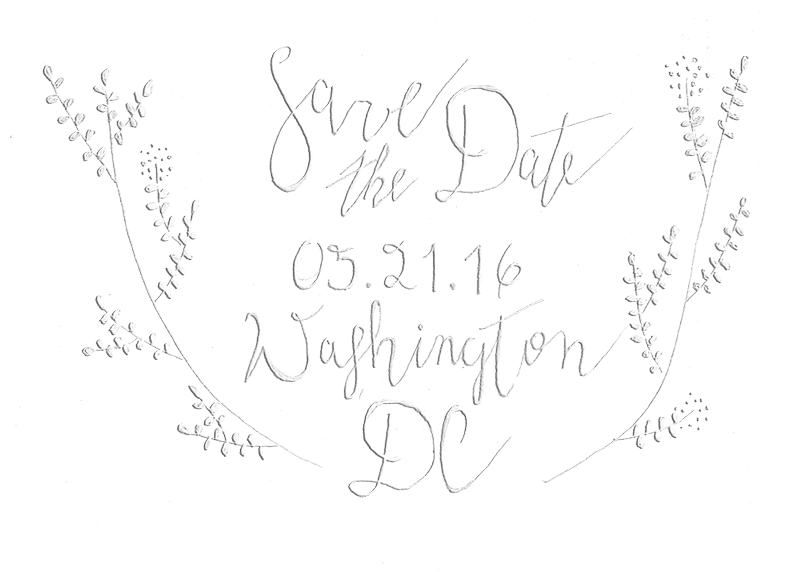 Save
the Date
05.21.16
Washington
DC